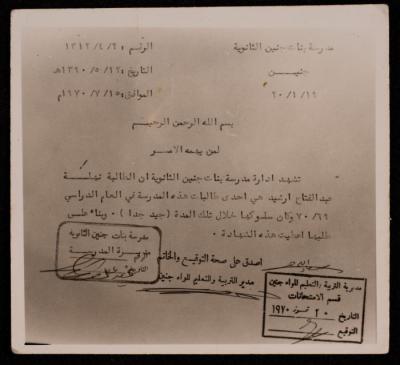 مدرسة بنات جنين الثانوية
جنيـــن
الرقم : ١٣١٢/٤/٦
التاريخ : ١٣٩٠/٥/١٢هـ
الموافق : ١٩٧٠/٧/١٥م
بسم الله الرحمن الرحيم
لمن يهمه الامر
تشهد ادارة مدرسة بنات جنين الثانوية ان الطالبة نهلة
عبدالفتاح ارشيد هي احدى طالبات هذه المدرسة في العام الدراسي
٧٠/٦٩ وكان سلوكها خلال تلك المدة (جيد جدا) . وبناء على
طلبها اعطيت هذه الشهادة .
مدرسة بنات جنين الثانوية
مديرة المدرسة
التاريخ
اصدق على صحة التوقيع والخاتم
مدير التربية والتعليم للواء جنين
مديرية التربية والتعليم للواء جنين
قسم الامتحانات
التاريخ ٢٠ تموز ١٩٧٠
التوقيع